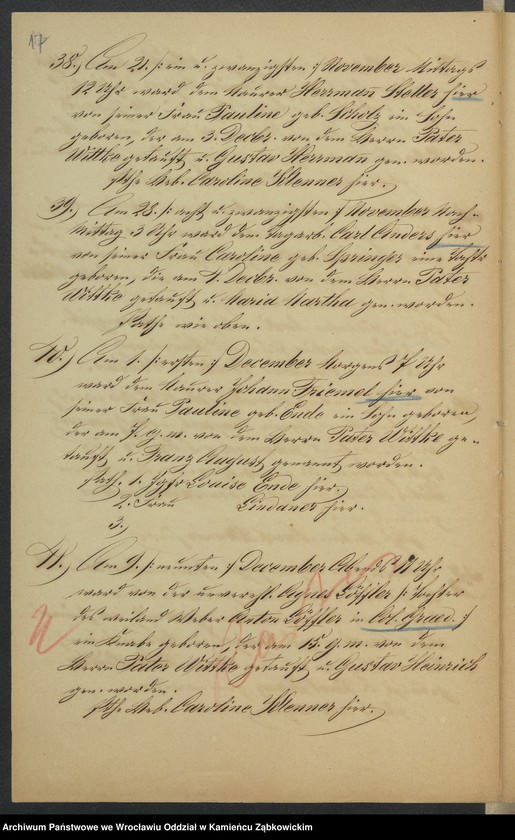 17
38.) Am 21. /: ein u. zwanzigsten :/ November Mittags
12 Uhr ward dem Maurer Herrman Stetter hier
von seiner Frau Pauline geb. Scholz ein Sohn
geboren, der am 3. Decbr. von dem Herrn Pater
Wittke getauft u. Gustav Herrman gen. worden.
Pthe Heb. Caroline Klenner hier.
39.) Am 28. /: acht u. zwanzigsten :/ November Nach-
mittag 3 Uhr ward dem Tagarb. Carl Anders hier
von seiner Frau Caroline geb. Springer eine Tochter
geboren, die am 4. Decbr. von dem Herrn Pater
Wittke getauft u. Maria Martha gen. worden.
Pathe wie oben.
40.) Am 1. /: ersten :/ December Morgens 7 Uhr
ward dem Maurer Johann Triemel hier von
seiner Frau Pauline geb. Ende ein Sohn geboren,
der am 7. q. m. von dem Herrn Pater Wittke ge-
tauft u. Franz August genannt worden.
Path. 1. Jgfr Louise Ende hier.
2. Frau Lindauer hier.
3.
41.) Am 9. /: neunten :/ December Abends Uhr
ward von der unverehl. Agnes Löffler /: Tochter
des weiland Weber Anton Löffler in :/
ein Knabe geboren, der am 15. q. m. von dem
Herrn Pater Wittke getauft u. Gustav Heinrich
gen. worden.
Pthe Heb. Caroline Klenner hier.
Archiwum Państwowe we Wrocławiu Oddział w Kamieńcu Ząbkowickim